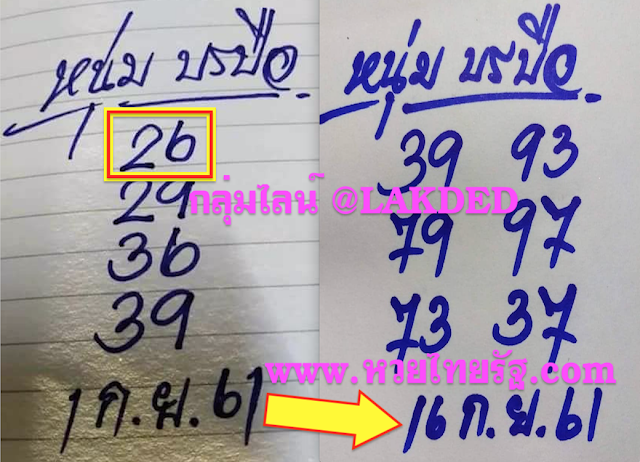 หนุ่ม บรบือ
26
29
36
39
1 ก.ย. 61
หนุ่ม บรบือ
39 93
79 97
73 37
16 ก.ย. 61
กลุ่มไลน์ @LAKDED
www.หวยไทยรัฐ.com